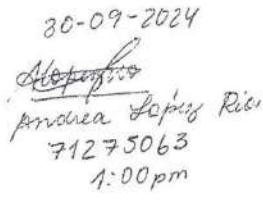 30-09-2024
Andrea López Rio
71275063
1:00pm